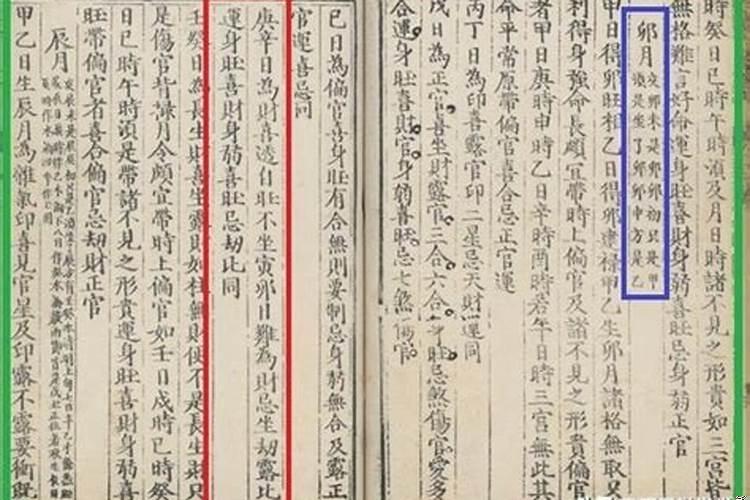 時癸日巳時午時湏及月日時諸不見之形貴如三宮皆
無格難言好命運身旺喜財身弱喜旺忌身弱正官
卯月
亥卯未是卯卯初只是甲
湏是坐了卯卯中方是乙
甲日得卯旺相乙日得卯建祿甲乙生卯月諸格無取只
利得身強命長頗宜帶時上偏官及諸不見之形貴偏官
者甲日庚時申時乙日辛時酉時若午日時三宮無此其
命平常原帶偏官喜合忌正官運
丙丁日為印喜露官印二星忌天財運同
戊日為正官喜坐財露官三合六合身旺忌煞傷官愛多
合運身旺喜財官身弱喜旺忌七煞傷官
己日為偏官喜身旺有合無則要制忌身弱無合及露正
官運喜忌同
庚辛日為財喜透自旺不坐寅卯日難為財忌坐劫露比
運身旺喜財身弱喜旺忌劫比同
壬癸日為長生財喜生露財如柱無財便不是長生財只
是傷官背祿月令頗宜帶時上偏官如壬日戊時巳時癸
日巳時午時湏是帶諸不見之形貴運身旺喜財身弱喜
旺帶偏官者喜合偏官忌劫財正官
辰月
甲乙日生辰月為雜氣印喜見官星及印露不露要衝既